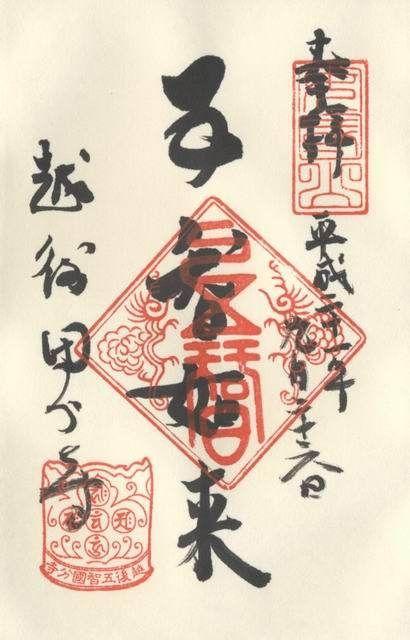 奉拝
平成二十一年
九月
五智如来
五智
越後国分寺
越後五智國分寺